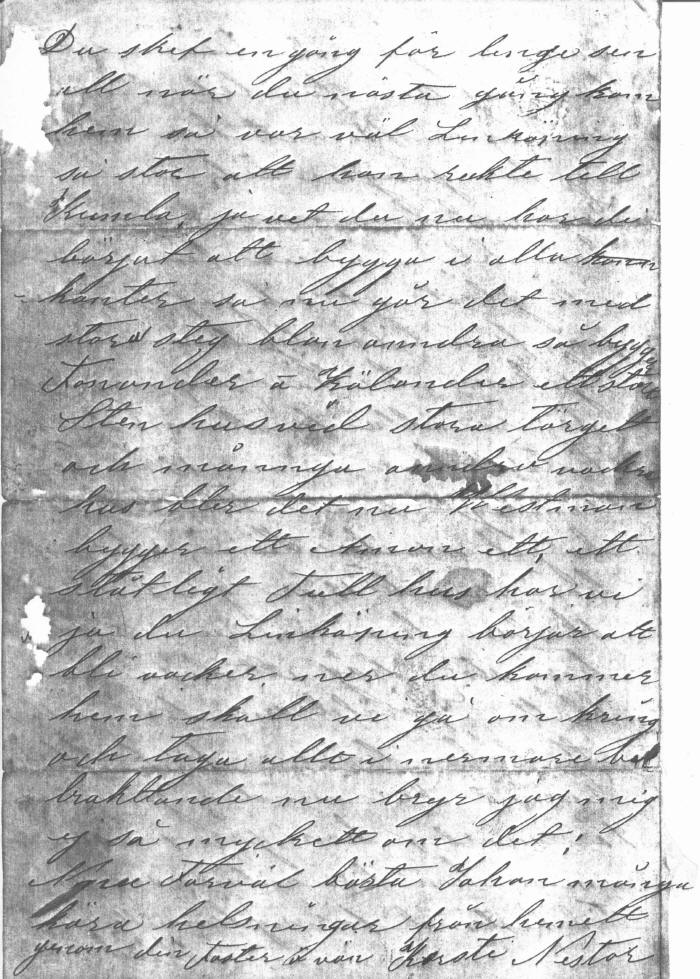 Du skref en gång för lenge sen
att när du nästa gång kom
hem så var väl Linköping
så stor att han rekte till
Kumla, ja vet du nu har di
börjat att bygga i alla
kanter så nu går det med
stora steg blan anndra så bygger
Tonander å Kölander ett stor
Sten hus vid stora torget
och månnga anndra vackra
hus bler det nu Westman
bygger ett Aman ett, ett
ståtligt Tull hus har vi
ja du Linköping börjar att
bli vacker ner du kommer
hem skall vi gå om kring
och taga allt i nermare be
traktande nu bryr jag mig
ej så myckett om det,
Nu Farväl bästa Johan många
kära helsningar från hemett
genom din Foster o vän Kersti Nestor